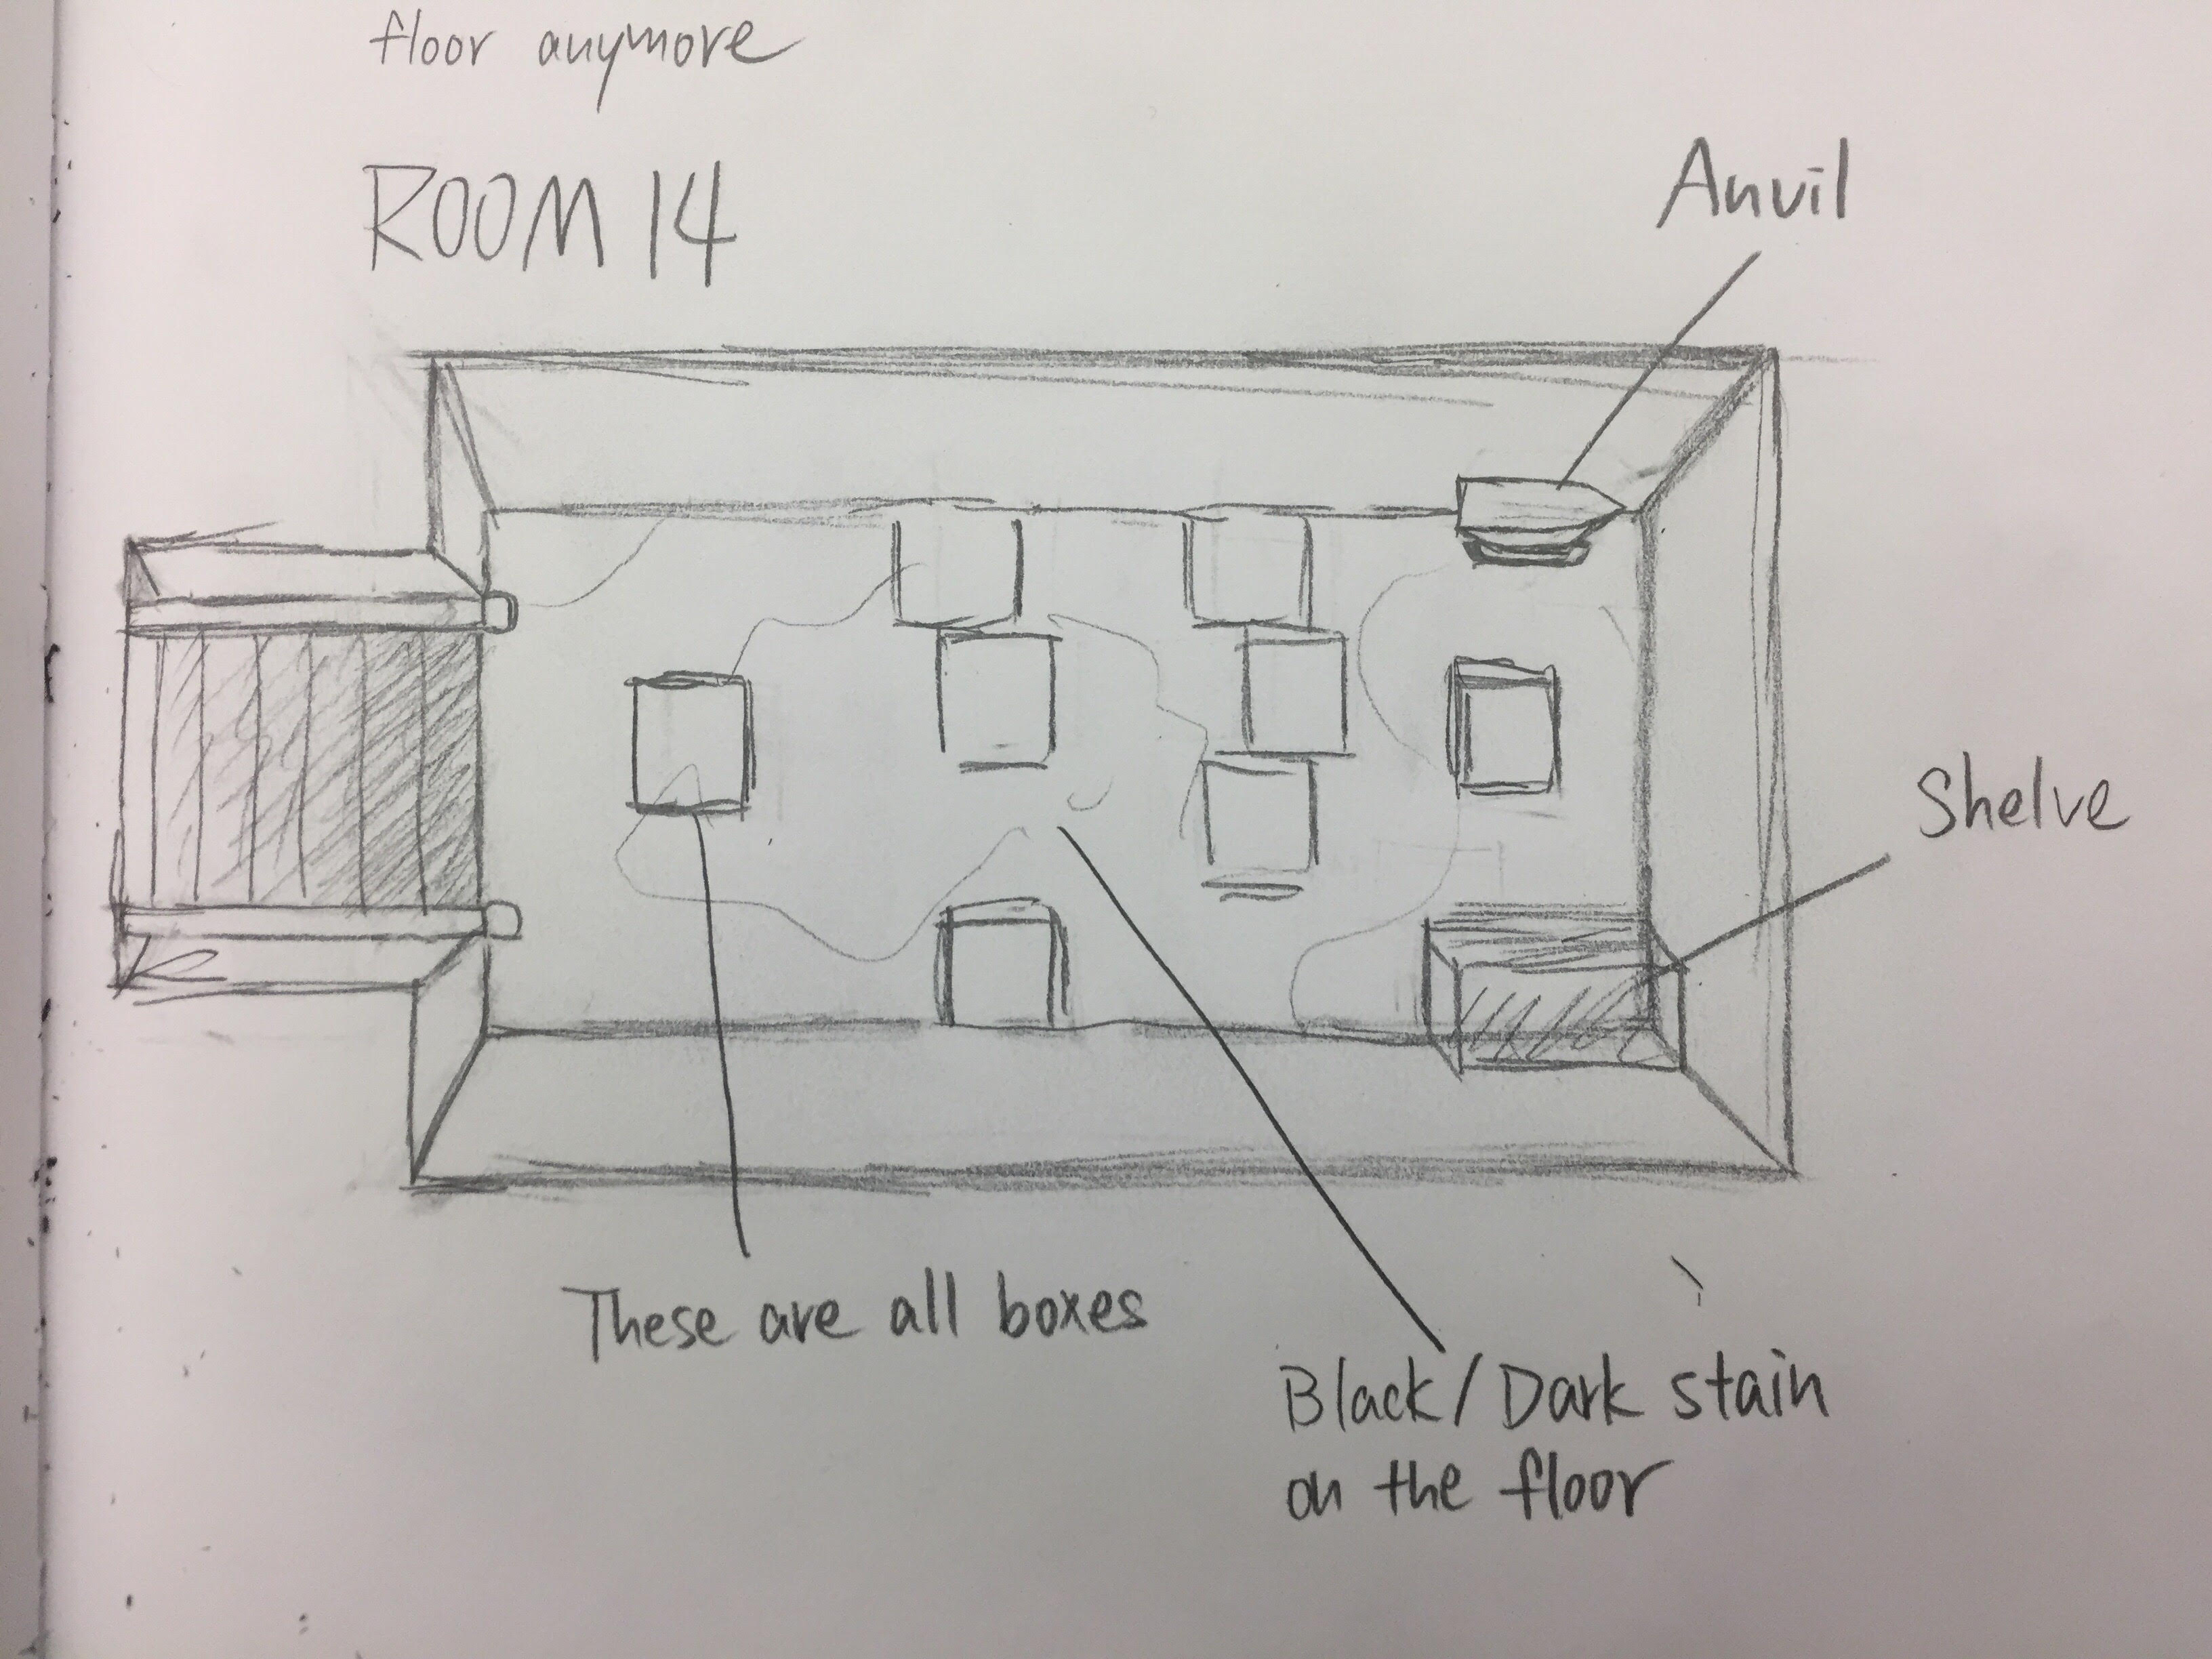 floor anymore
ROOM 14
Anvil
Shelve
These are all boxes
Black/Dark stain
on the floor